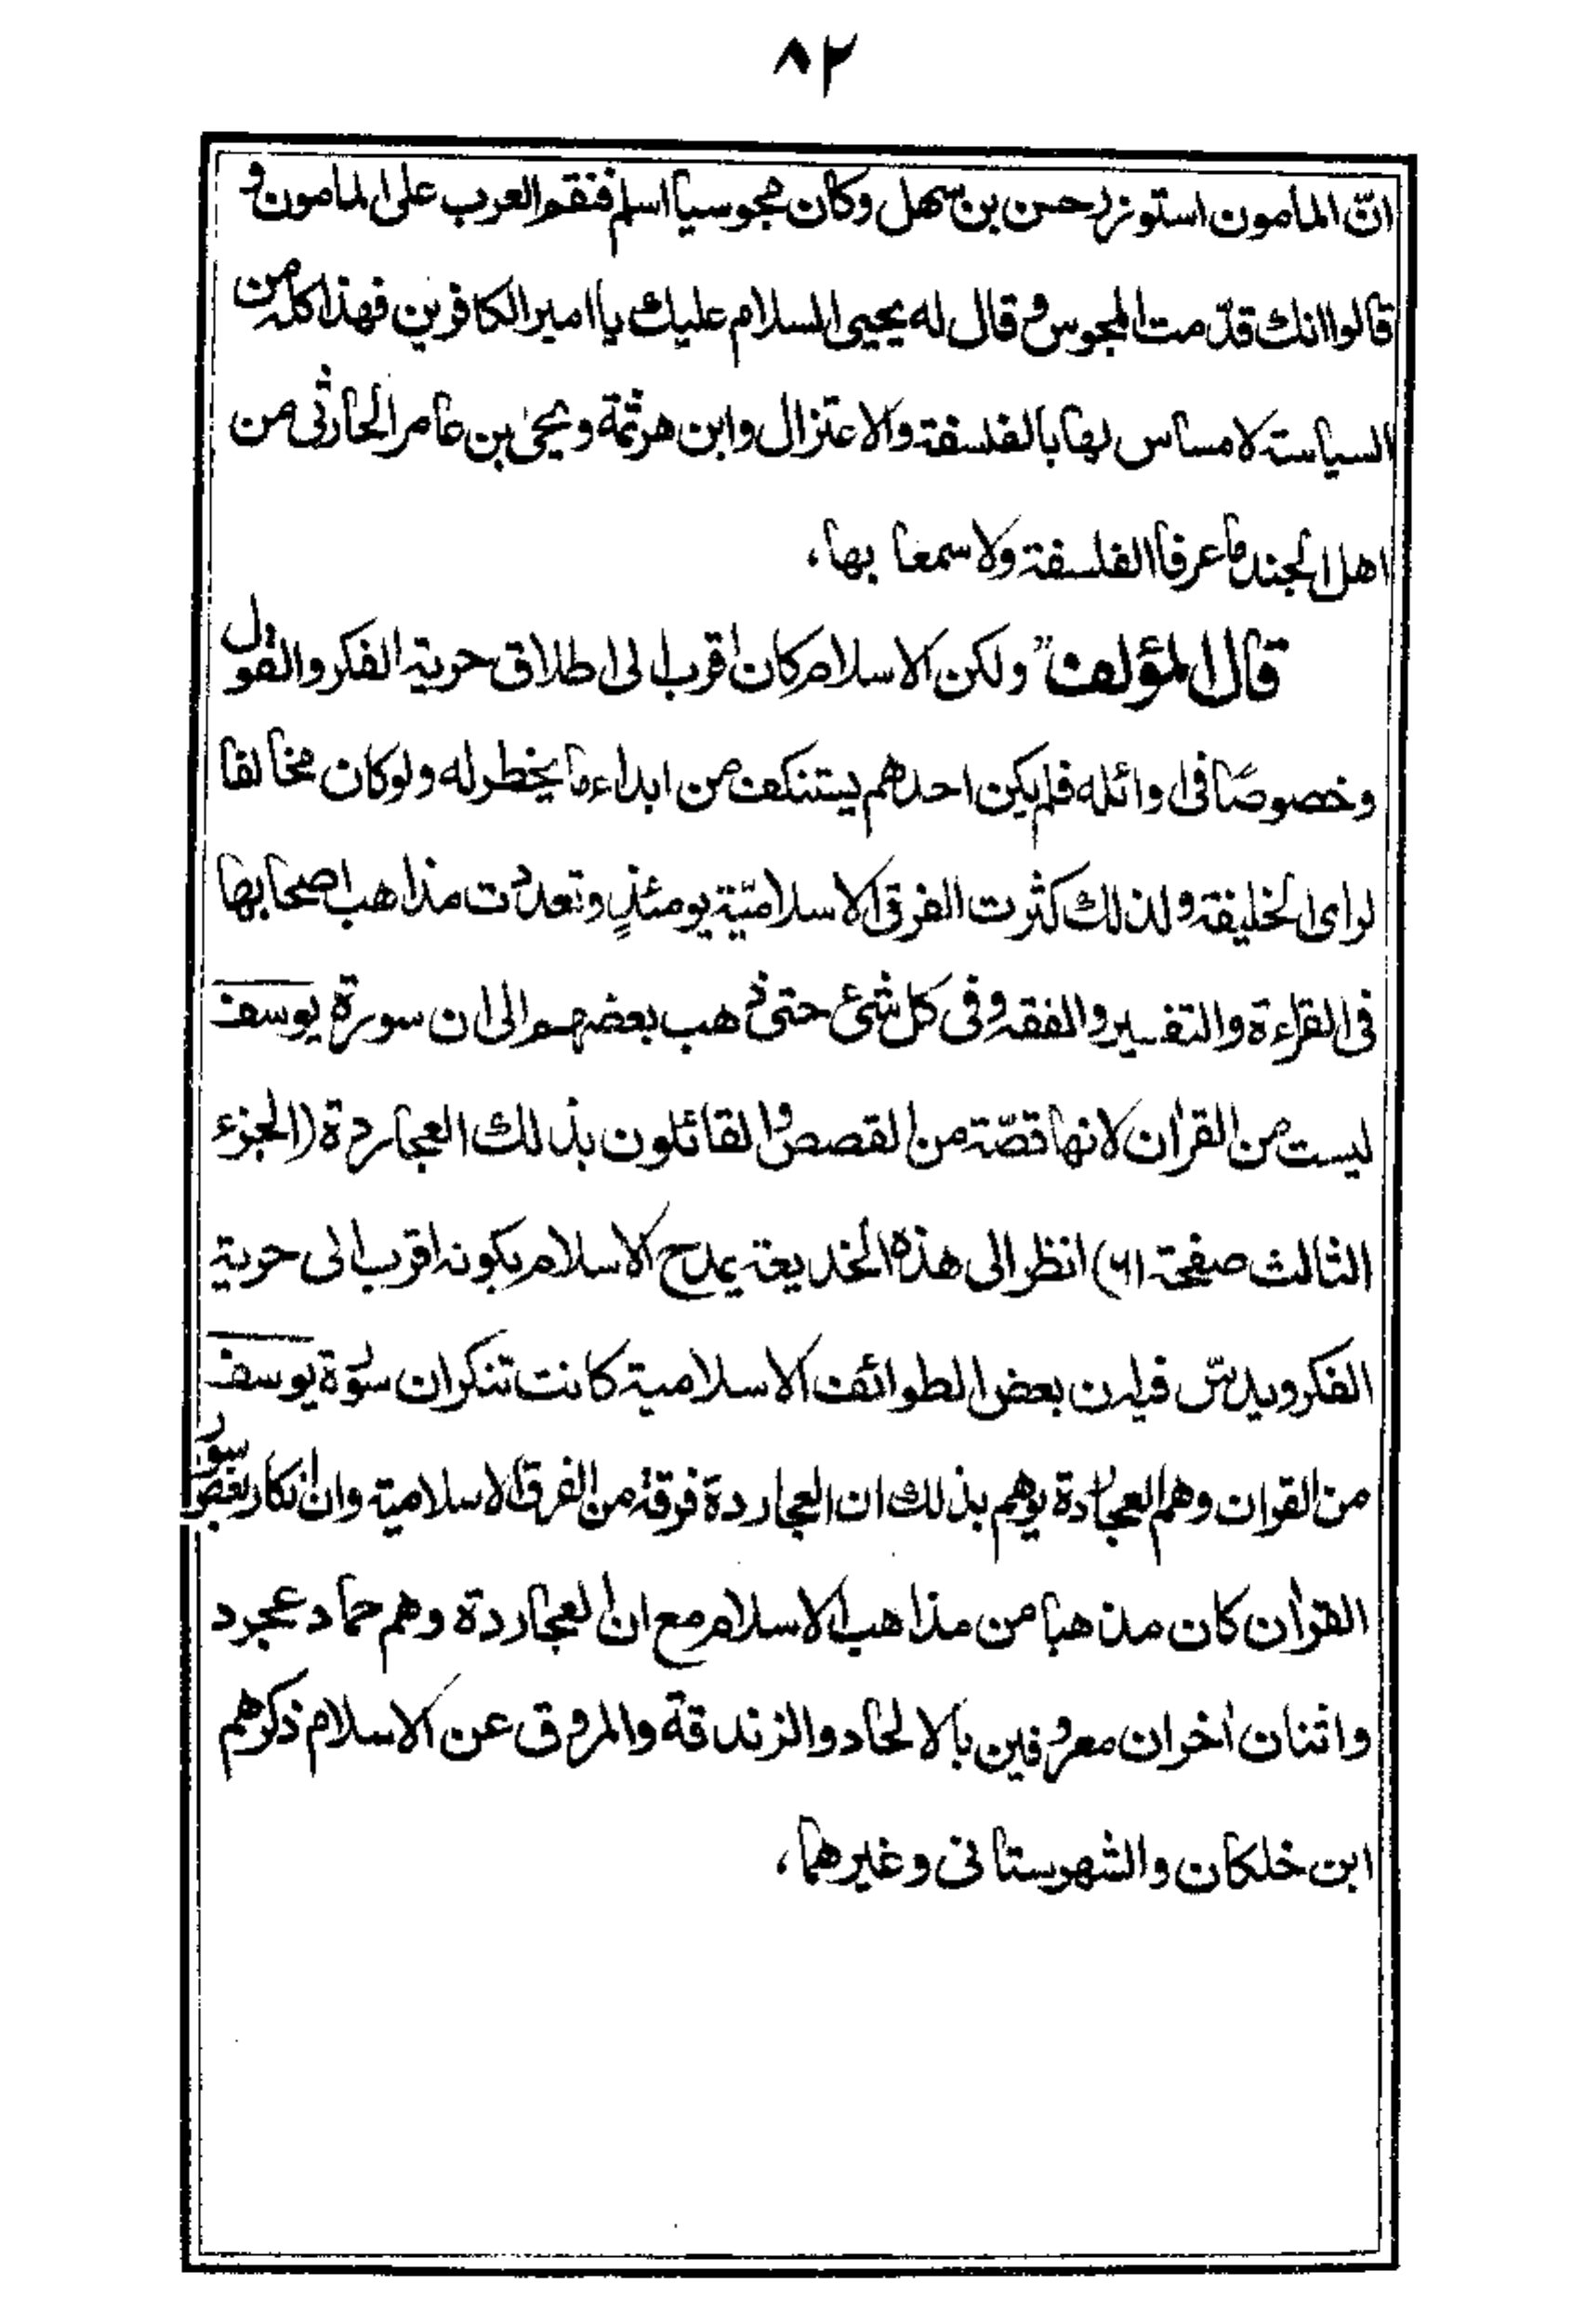 ٨٢
انّ المامون استوزر حسن بن سهل وكان مجوسيا اسلم فنقم العرب على المامون و
قالوا انك قدّمت المجوس و قال له يحيى السلام عليك يا امير الكافرين فهذا كله من
السياسة لا مساس لها بالفلسفة والاعتزال وابن هرثمة ويحيى بن عامر الحارثى من
اهل الجند ما عرفا الفلسفة ولا سمعا بها،
قال المؤلف "ولكن الاسلام كان اقرب الى اطلاق حرية الفكر والقول
وخصوصًا فى اوائله فلم يكن احدهم يستنكف من ابداء ما يخطر له ولو كان مخالفا
لراى الخليفة ولذلك كثرت الفرق الاسلاميّة يومئذٍ وتعددت مذاهب اصحابها
فى القراءة والتفسير والفقه وفى كل شئ حتى ذهب بعضهم الى ان سورة يوسف
ليست من القرآن لانها قصّة من القصص والقائلون بذلك العجاردة (الجزء
الثالث صفحة ٦١) انظر الى هذه الخديعة يمدح الاسلام بكونه اقرب الى حرية
الفكر ويدسّ فيه ان بعض الطوائف الاسلامية كانت تنكر ان سورة يوسف
من القران وهم العجاردة يوهم بذلك ان العجاردة فرقة من الفرق الاسلامية وان انكار بعض سور
القرآن كان مذهبا من مذاهب الاسلام مع ان العجاردة وهم حماد عجرد
واثنان آخران معروفين بالالحاد والزندقة والمروق عن الاسلام ذكرهم
ابن خلكان والشهرستانى وغيرهما،